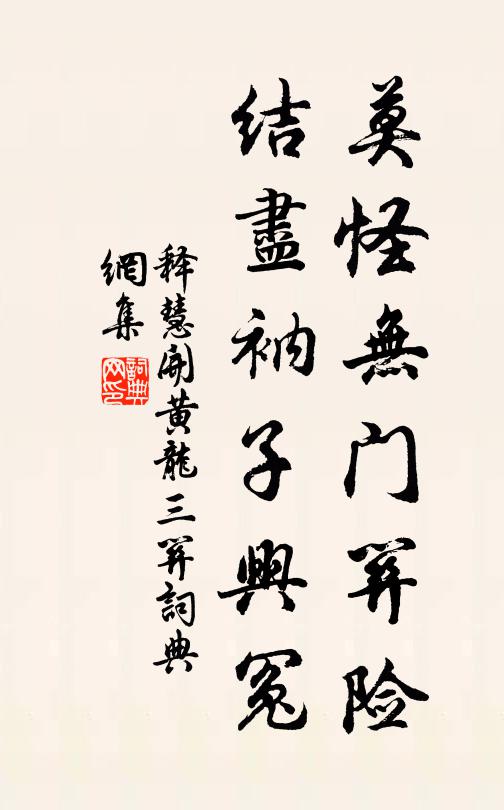 莫怪無门关险
结盡衲子興冤
释慧開黄龍三关詞典
網集
詞典
网印